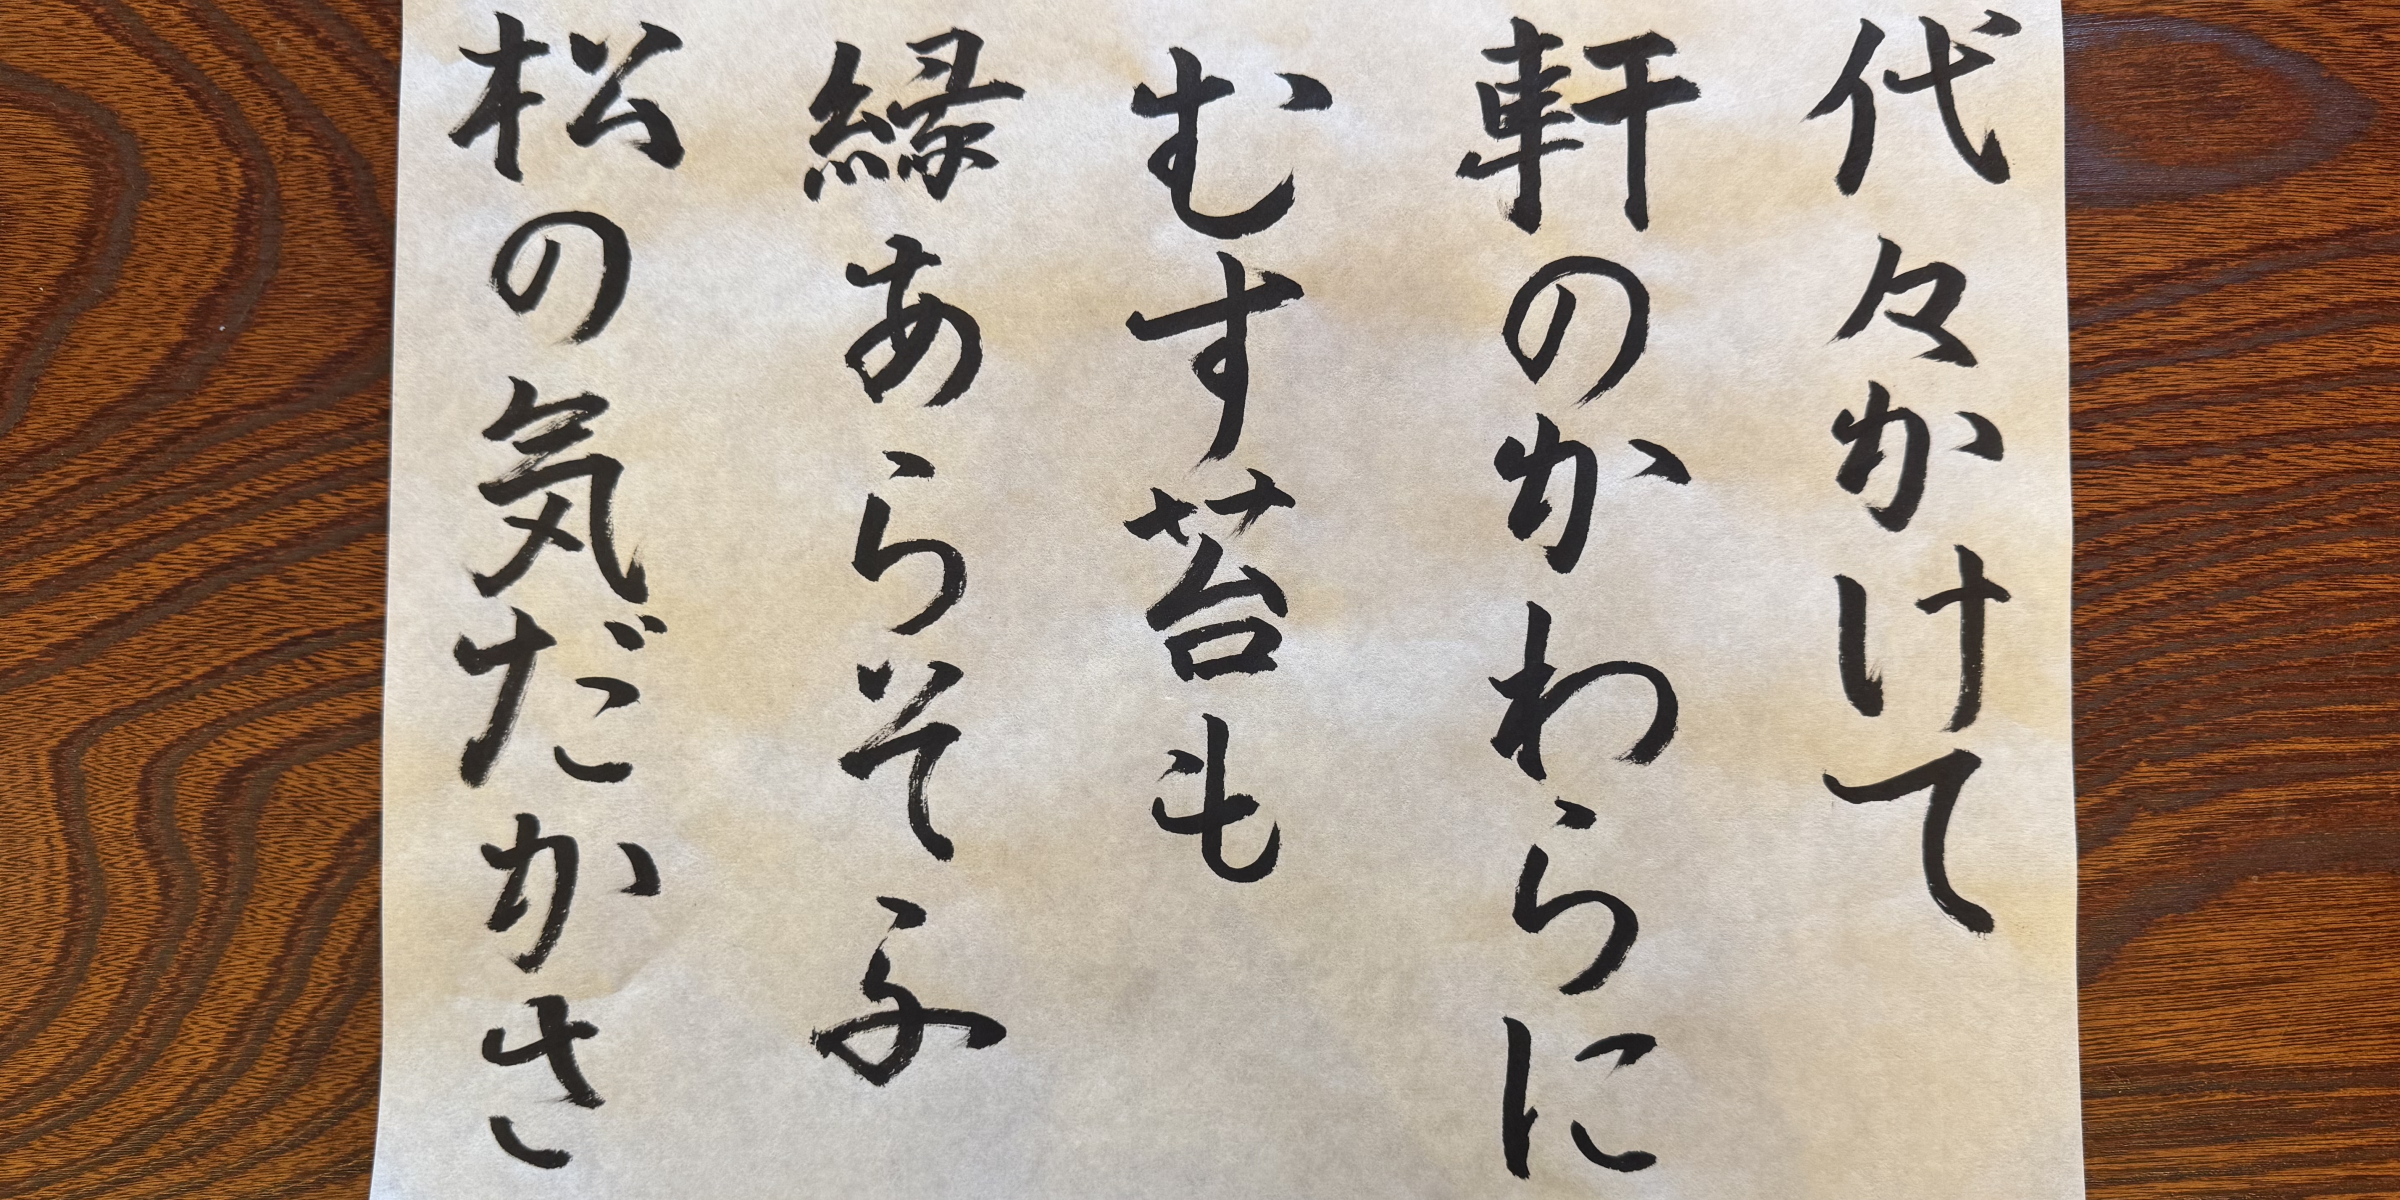 代々かけて
軒のかわらに
むす苔も
縁あらそふ
松の気だかさ